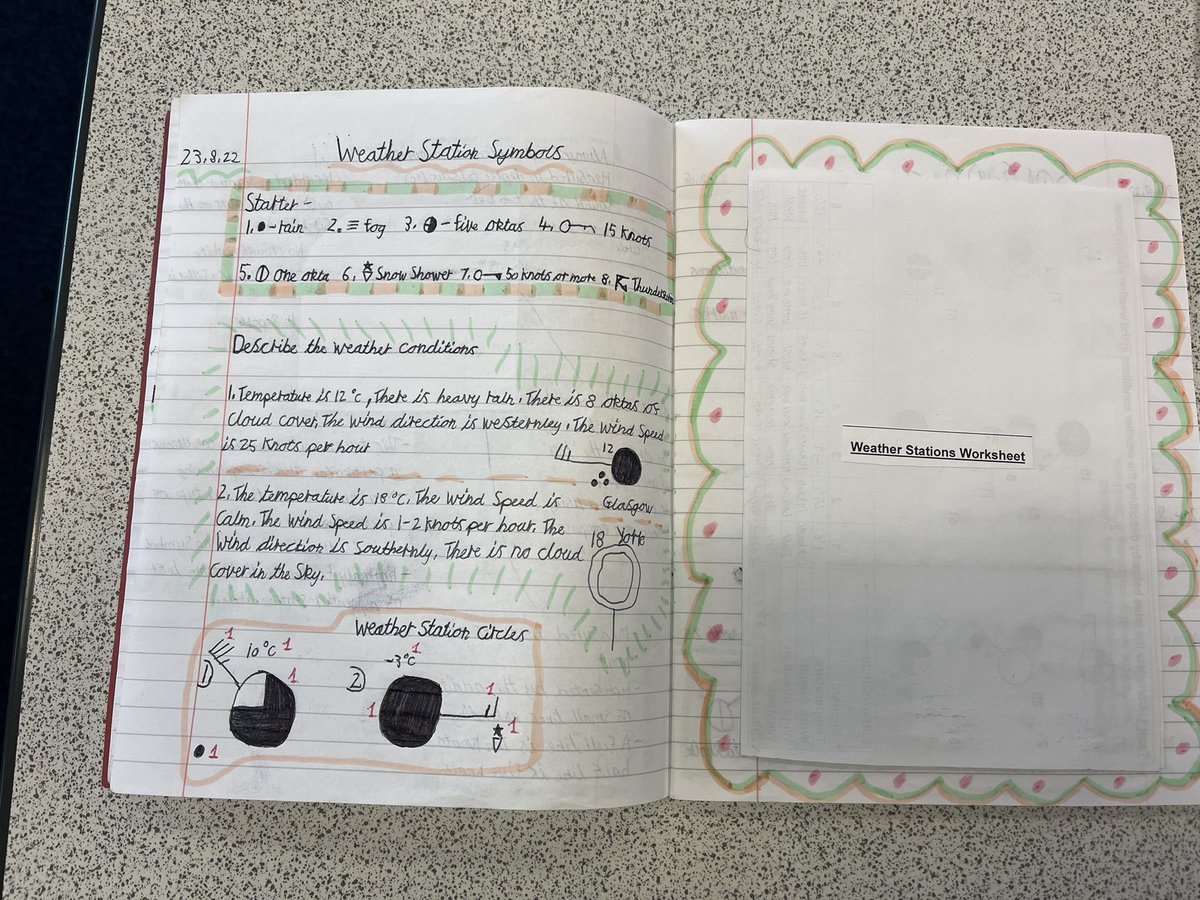 23.8.22
Weather Station Symbols
Starter -
1. - rain 2. fog 3. - five oktas 4. 15 knots
5. One okta 6. Snow Shower 7. 50 knots or more 8. Thunderstorm
Describe the weather conditions
1. Temperature is 12°c, There is heavy rain. There is 8 oktas of
cloud cover, The wind direction is westernley. The wind speed
is 25 knots per hour
12
Glasgow
2. The temperature is 18°c. The wind speed is
Calm. The wind speed is 1-2 knots per hour. The
wind direction is southernly. There is no cloud
cover in the sky.
18 York
Weather Station Circles
1 10°c 1
1 1
1
2 -3°c 1
1 1
1
Weather Stations Worksheet